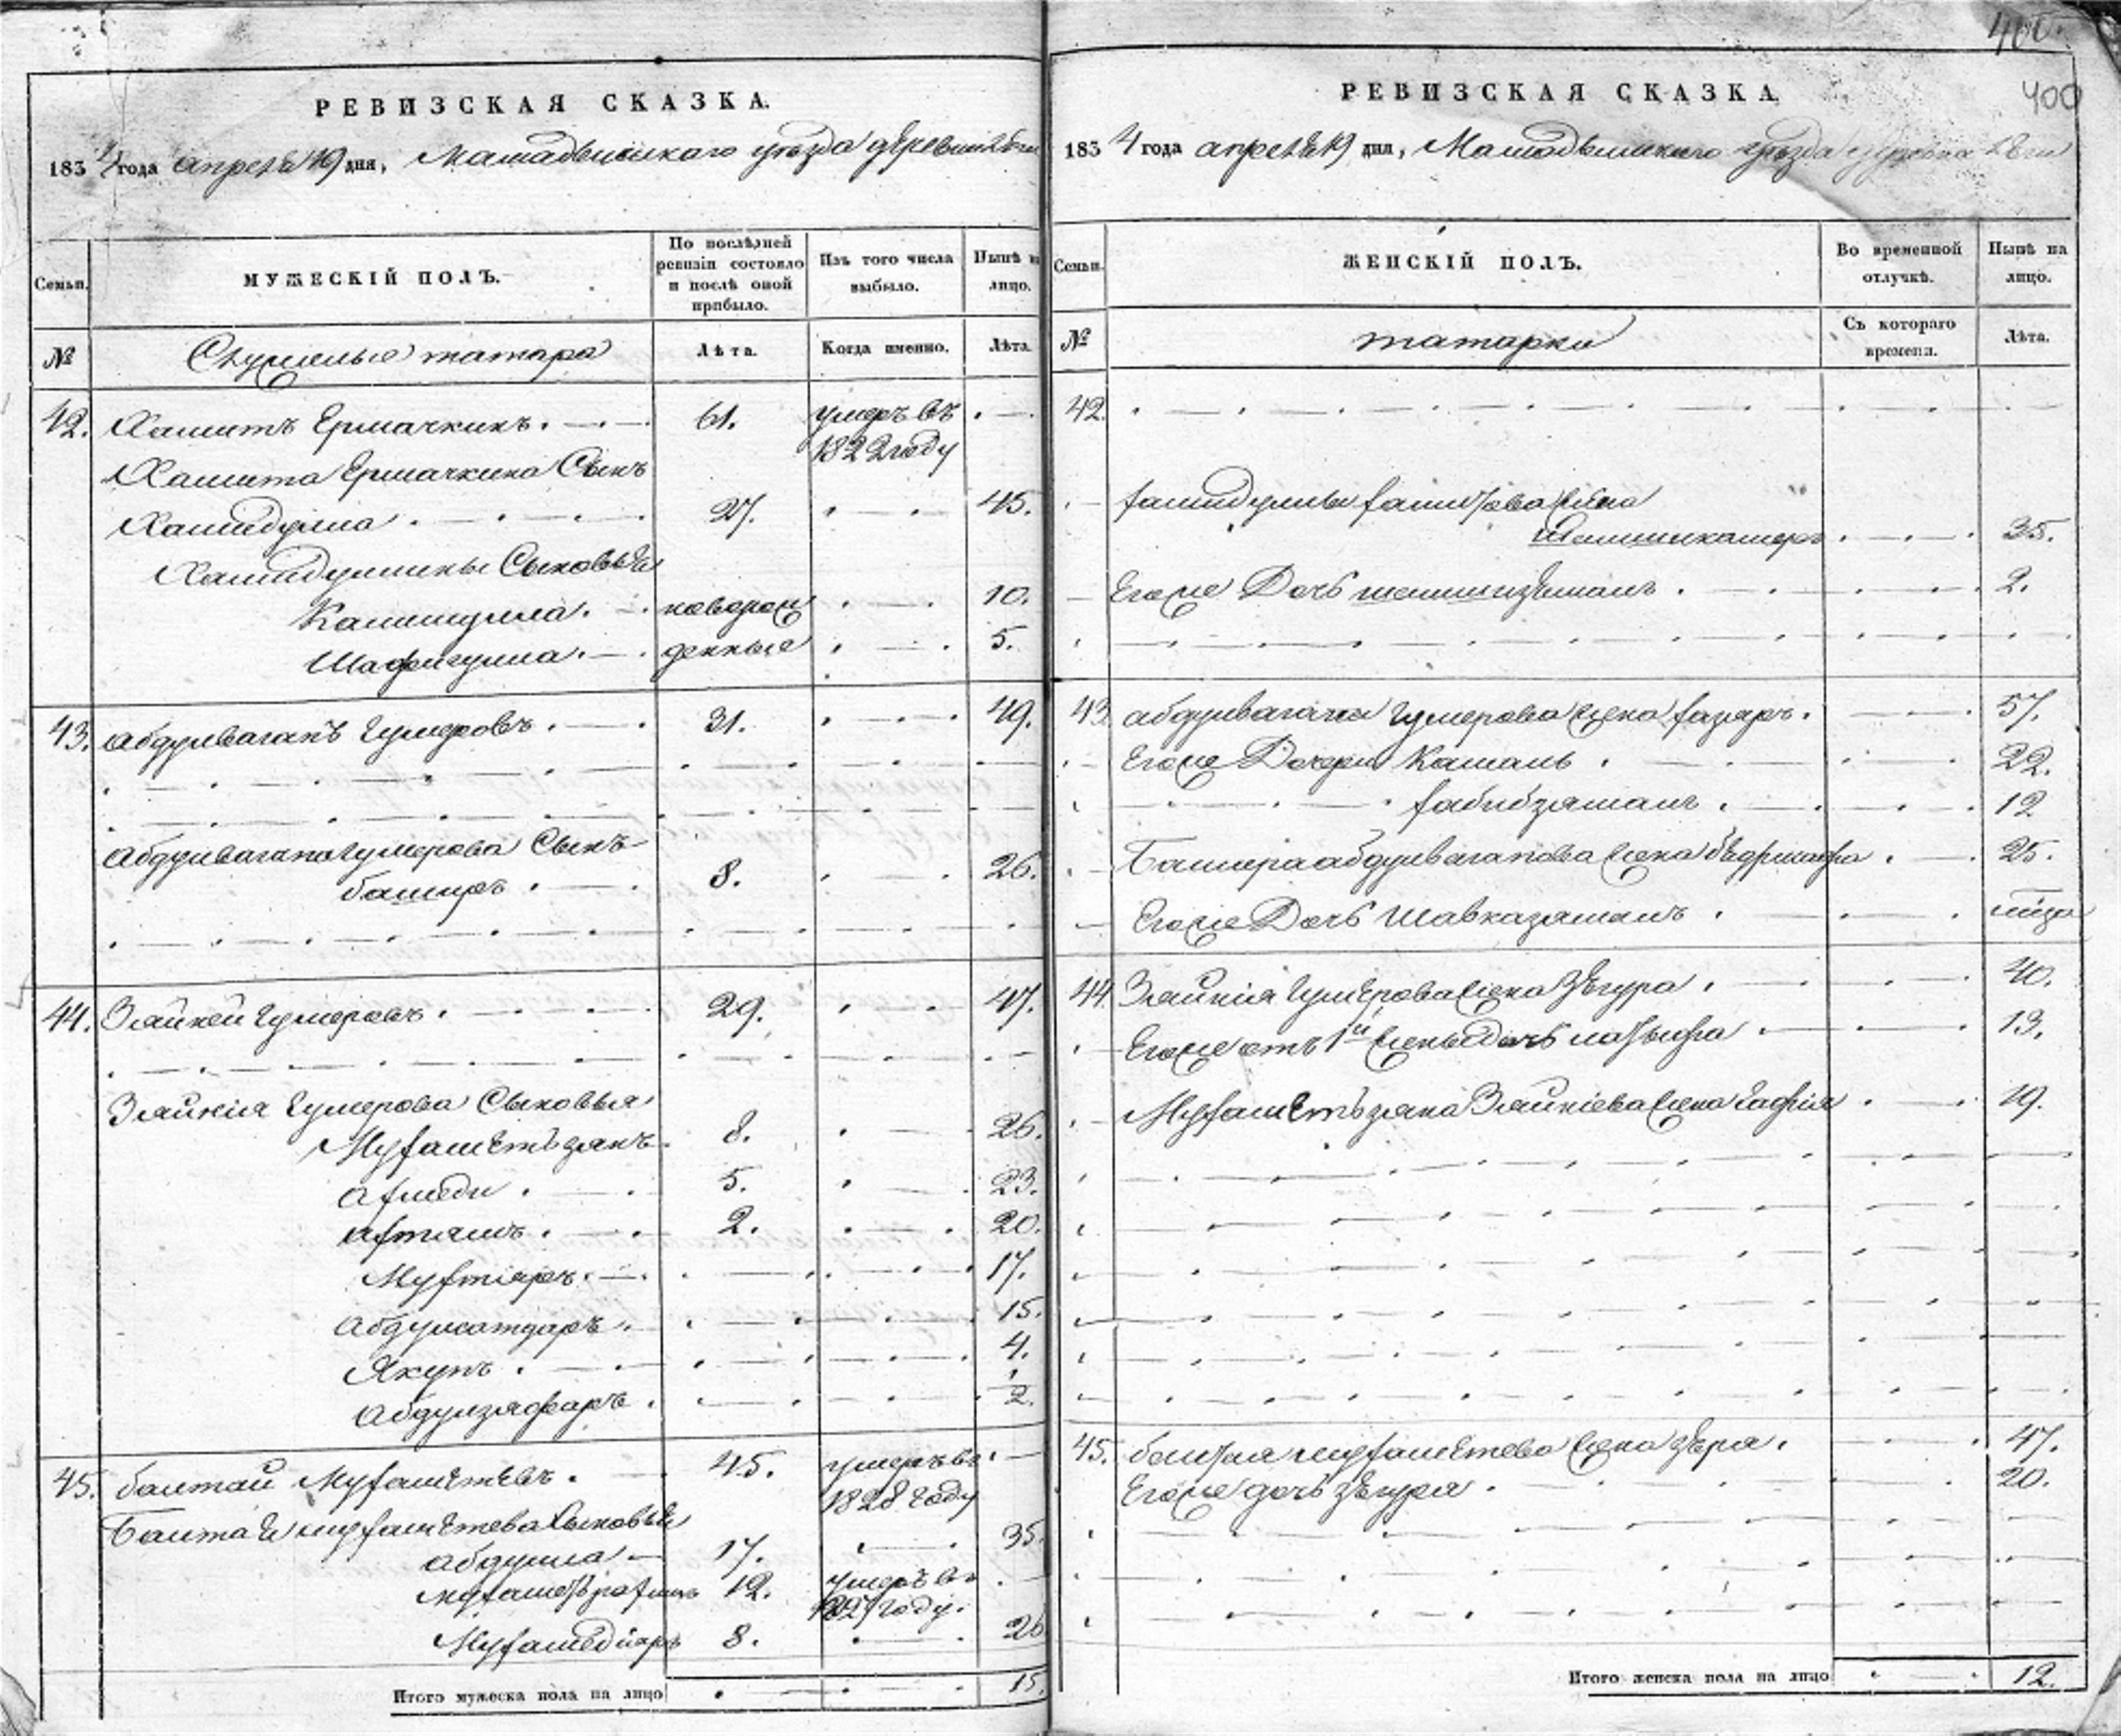 РЕВИЗСКАЯ СКАЗКА.
1834 года апреля 19 дня, Мамадышского уезда деревни
Семьи.
МУЖЕСКІЙ ПОЛЪ.
По послѣдней ревизіи состояло и послѣ оной прибыло.
Изъ того числа выбыло.
Нынѣ на лицо.
№
Служилыя татара
Лѣта.
Когда именно.
Лѣта.
42. Хамитъ Ермачкинъ. 61. умеръ въ
1822 году
Хамита Ермачкина Сынъ
Хамидулла 27. 45.
Хамидуллины Сыновья
Калимулла. новорож 10.
Шафигулла. денные 5.
43. Абдулваганъ Гумеровъ. 31. 49.
Абдулвагапа Гумерова Сынъ
баширъ. 8. 26.
44. Зялкей Гумеровъ. 29. 47.
Зялкія Гумерова Сыновья
Мухаметьзянъ 8. 26.
Ахмеди. 5. 23.
Ахтямъ. 2. 20.
Мухтіяръ. 17.
Абдулсатдаръ. 15.
Якупъ. 4.
Абдулзяфаръ. 1/2
45. балтай Мухаметевъ. 45. умеръ въ
1828 году
Балтая мухаметева Сыновья
абдулла 17. 35.
12. умеръ въ
1827 году.
Мухамедіяръ 8. 26
Итого мужеска пола на лицо 15.
400.
400
РЕВИЗСКАЯ СКАЗКА
1834 года апреля 19 дня, Мамадышского уезда деревни
Семьи.
ЖЕНСКІЙ ПОЛЪ.
Во временной отлучкѣ.
Нынѣ на лицо.
№
татарки
Съ котораго времени.
Лѣта.
42.
хамидуллы хамитова жена
35.
Егоже Дочь 2.
43. абдулвагапа Гумерова жена хазяръ. 57.
Егоже Дочери Камаль. 22.
хабибзямалъ. 12
Башира абдулвагапова жена 25.
Егоже Дочь Шавказямалъ.
44. Зялкія Гумерова жена Зѣгура. 40.
Егоже отъ 1й жены Дочь латыфа 13.
Мухаметьзяна Зялкіева жена Гафія 19.
45. балтая мухаметева жена зѣра. 47.
Егоже дочь зѣгура. 20.
Итого женска пола на лицо 12.